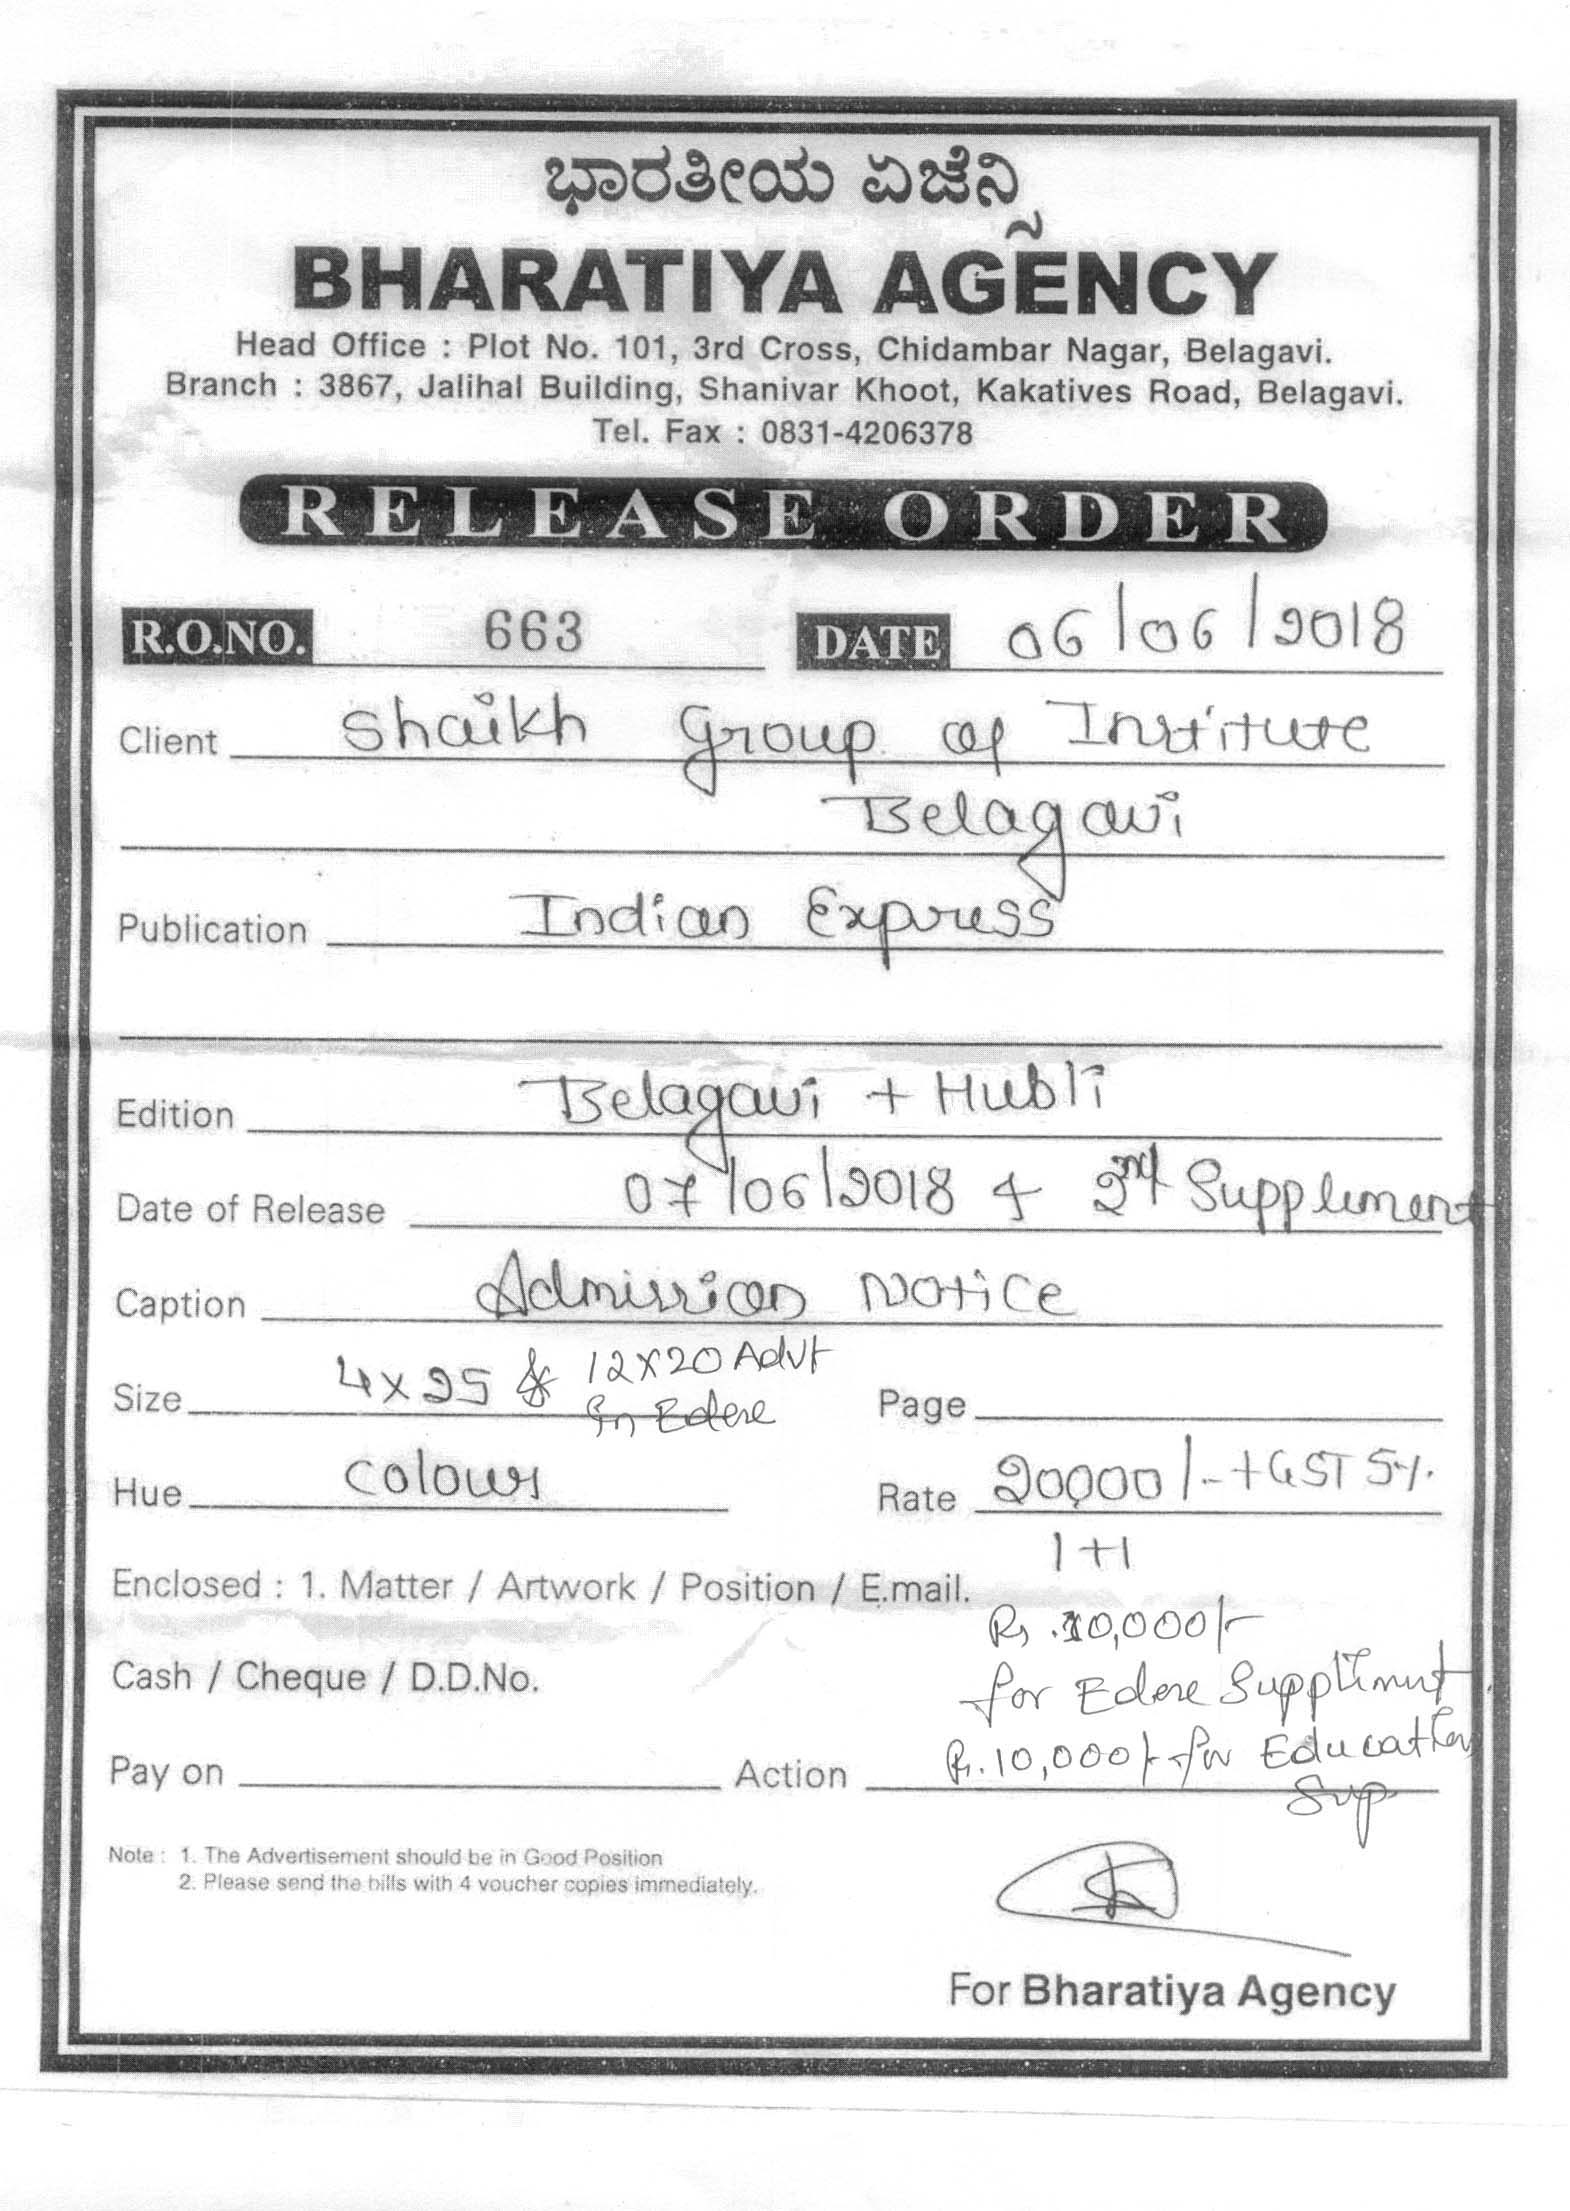 ಭಾರತೀಯ ಏಜೆನ್ಸಿ
BHARATIYA AGENCY
Head Office : Plot No. 101, 3rd Cross, Chidambar Nagar, Belagavi.
Branch : 3867, Jalihal Building, Shanivar Khoot, Kakatives Road, Belagavi.
Tel. Fax : 0831-4206378
RELEASE ORDER
R.O.NO. 663 DATE 06/06/2018
Client Shaikh Group of Institute
Belagavi
Publication Indian Express
Edition Belagavi + Hubli
Date of Release 07/06/2018 & 2nd Suppliment
Caption Admission Notice
Size 4x25 & 12X20 Advt
in Edere Page
Hue Colour Rate 20000/- + GST 5%
1+1
Enclosed : 1. Matter / Artwork / Position / E.mail.
Rs. 10,000/-
Cash / Cheque / D.D.No. for Edere Suppliment
Pay on Action Rs. 10,000/- for Education
Sup
Note : 1. The Advertisement should be in Good Position
2. Please send the bills with 4 voucher copies immediately.
For Bharatiya Agency